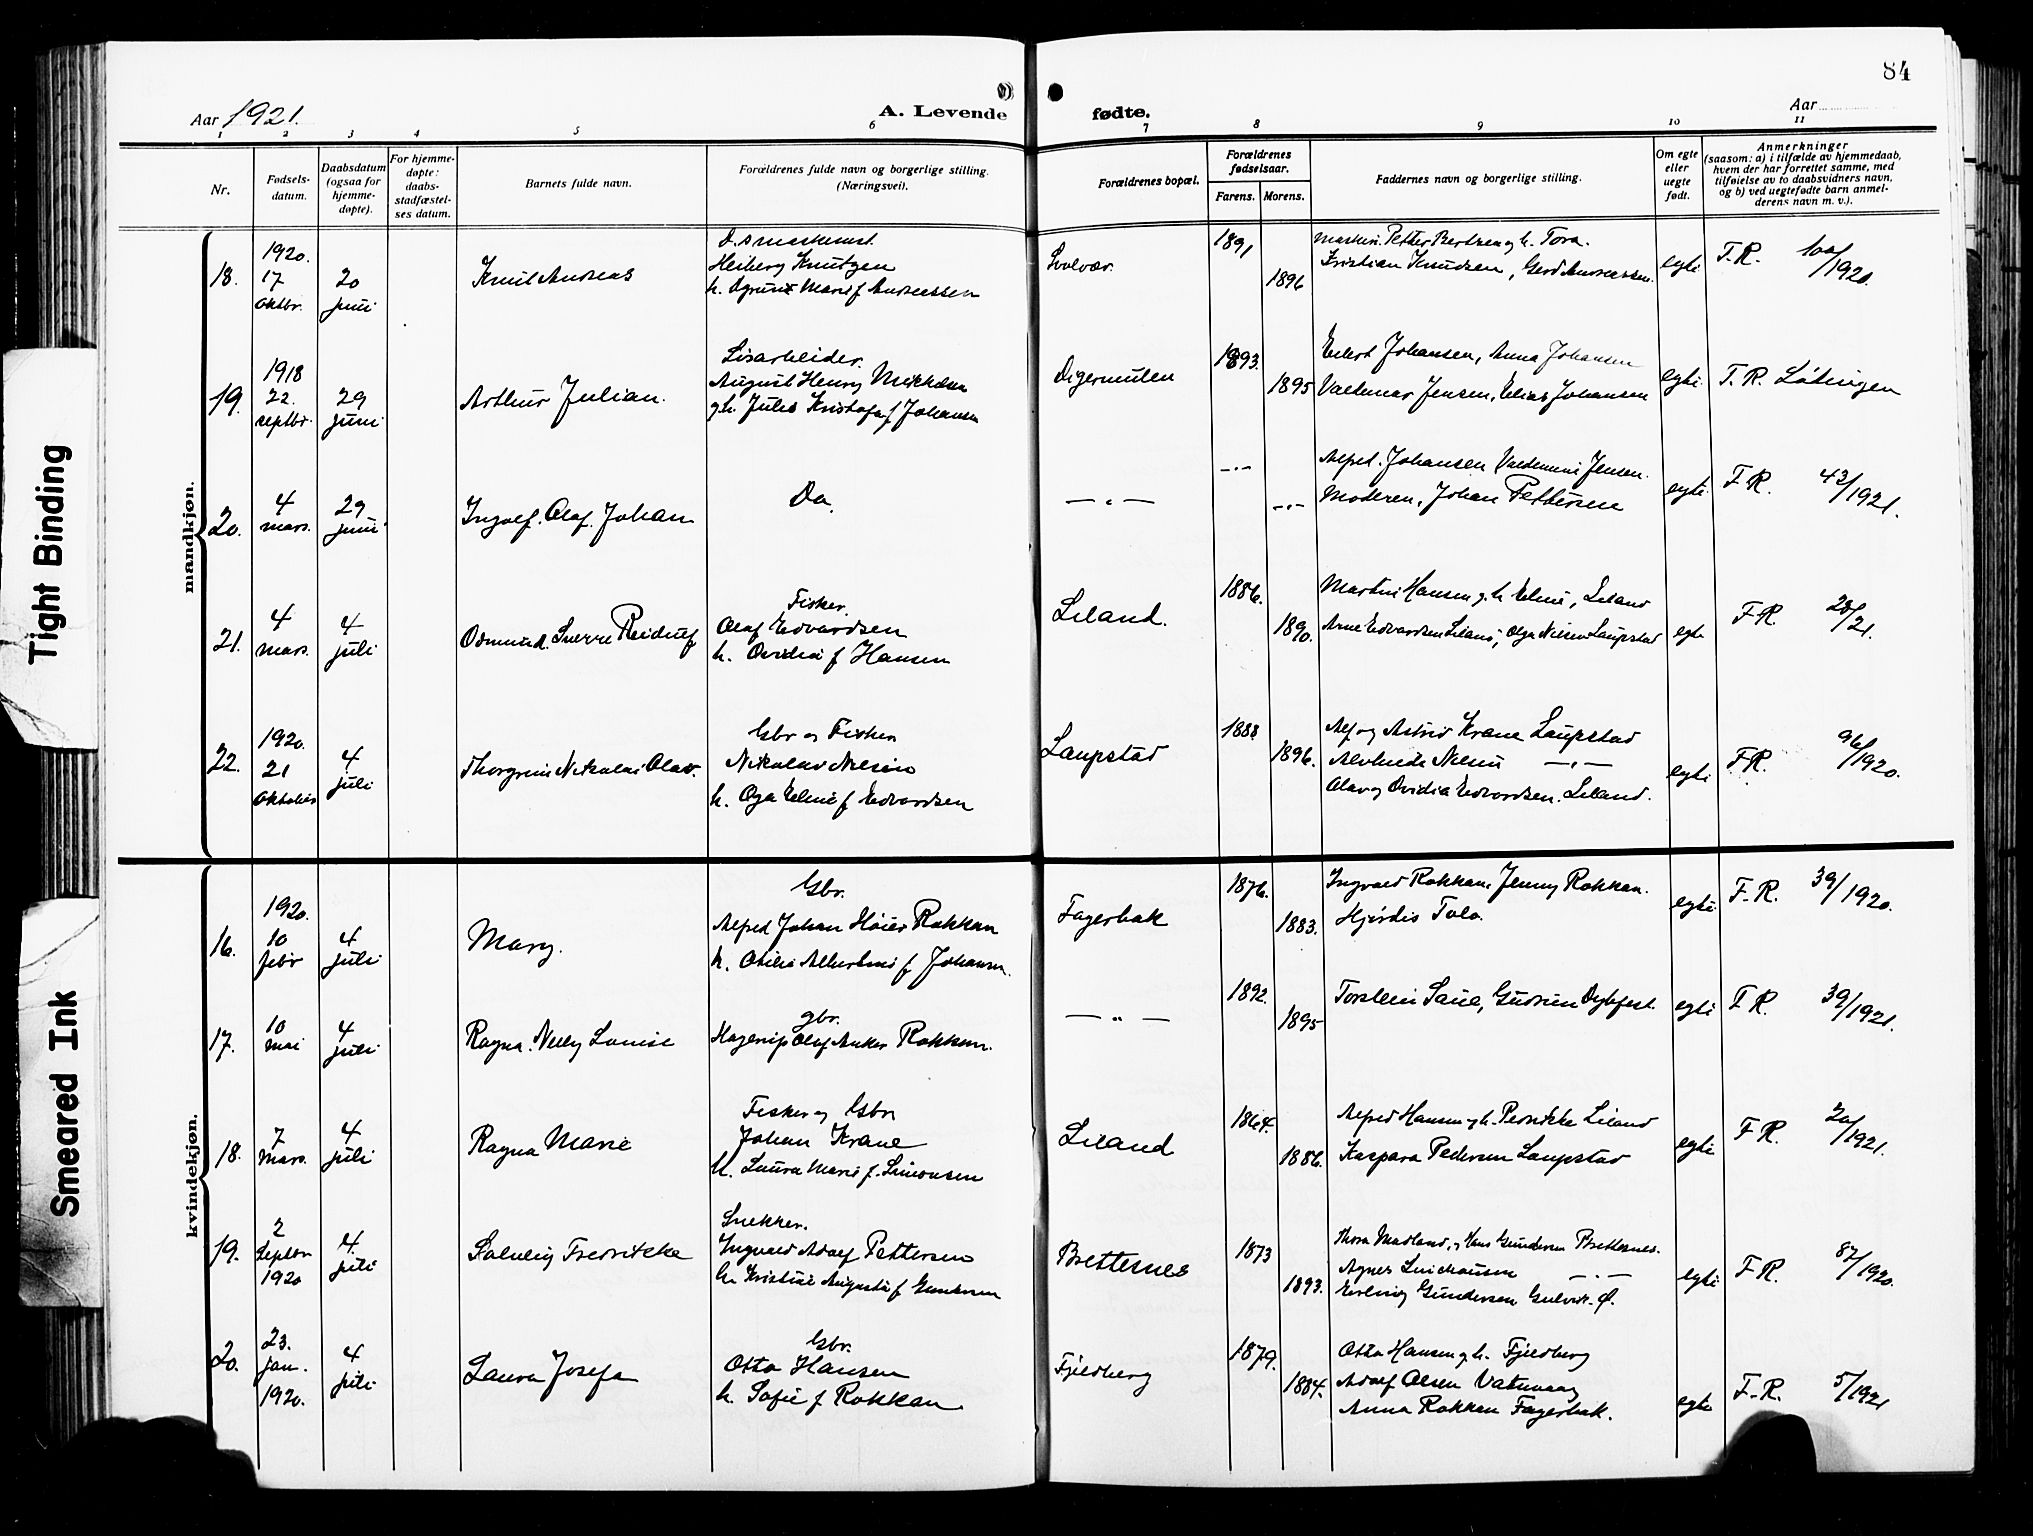 84
Aar 1921.
A. Levende fødte.
Aar
1 2 3 4 5 6 7 8 9 10 11
Nr.
Fødsels-
datum.
Daabsdatum
(ogsaa for
hjemme-
døpte).
For hjemme-
døpte:
daabs-
stadfæstel-
ses datum.
Barnets fulde navn.
Forældrenes fulde navn og borgerlige stilling.
(Næringsvei).
Forældrenes bopæl.
Forældrenes
fødselsaar.
Farens. Morens.
Faddernes navn og borgerlige stilling.
Om egte
eller
uegte
født.
Anmerkninger
(saasom: a) i tilfælde av hjemmedaab,
hvem der har forrettet samme, med
tilføielse av to daabsvidners navn,
og b) ved uegtefødte barn anmel-
derens navn m. v.).
mandkjøn.
18.
1920.
17
Oktbr.
20
juni
Knut Andreas
Heiberg Knutzen
Marie f Andreassen
Svolvær
1891
1896
Maskin. Petter Bertzen g. h. Tora.
Kristian Knudsen, Gerd Andreassen.
egte
F.R.
/1920.
19.
1918
22.
septbr.
29
juni
Arthur Julian.
Løsarbeider.
August Henry
g.h. Jules Kristofa f Johansen
Digermulen
1893.
1895
Eilert Johansen, Anna Johansen
Valdemar Jensen, Elias Johansen
egte
F.R. Lødingen
20.
4
mars.
29
juni
Ingolf. Olaf. Johan
Do.
— „ —
–.–
–.–
Alfred. Johansen Valdemar Jensen.
Moderen, Johan Pettersen
egte
F.R. 43/1921.
21.
4
mars.
4
juli
Odmund. Sverre Reidulf
Fisker.
Olaf Edvardsen
h. Ovidia f Hansen
Liland.
1886.
1890.
Martin Hansen g. h Eline, Liland
Arne Edvardsen Liland, Olga Nilsen Laupstad
egte
F.R. 28/21.
22.
1920.
21
Oktober
4
juli
Thorgrim Nikolai Olav.
Gbr og Fisker
Nikolav Nilsen
h. Olga Eline f Edvardsen
Laupstad
1888
1896.
Alf og Astrid Krane Laupstad
Alvhilde Nilsen — „ —
Olav og Ovidia Edvardsen. Liland.
egte
F.R. 96/1920.
kvindekjøn.
16.
1920.
10
febr
4
juli
Mary.
Gbr.
Alfred Johan Høier Rokkan
h. Otilie Albertine f Johansen.
Fagerbak
1876.
1883.
Ingvald Rokkan, Jenny Rokkan.
Hjørdis Tolo.
egte
F.R. 39/1920.
17.
10
mai
4
juli
Ragna. Nelly Louise
gbr.
Hagerup Olaf Anker Rokkan.
— „ —
1892.
1895
Torstein Saue, Gudrun Dybfest.
egte
F.R. 39/1921.
18.
7
Mars.
4
juli
Ragna Marie
Fisker og Gbr
Johan Krane
h. Laura Marie f. Simonsen
Liland
1864.
1886.
Alfred Hansen g h. Liland
Kaspara Pedersen Laupstad
egte
F.R. 20/1921.
19.
2
Septbr
1920
4.
juli
Solveig Fredrikke
Snekker.
Ingvald Adolf Pettersen
h. Kristine Augusta f Gundersen
Brettesnes
1873
1893.
Thora Madland, Hans Gundersen Brettesnes.
Agnes — „ —
Erling Gundersen Gulvik. Ø.
egte
F.R. 87/1920.
20.
23.
jan.
1920.
4
juli
Laura Josefa
Gbr.
Otto Hansen
h. Sofie f Rokkan
Fjeldberg
1879.
1884.
Otto Hansen g. h. Fjeldberg
Adolf Olsen Vatervaag
Anna Rokkan Fagerbak.
egte
F.R. 5/1921
Tight Binding
Smeared Ink